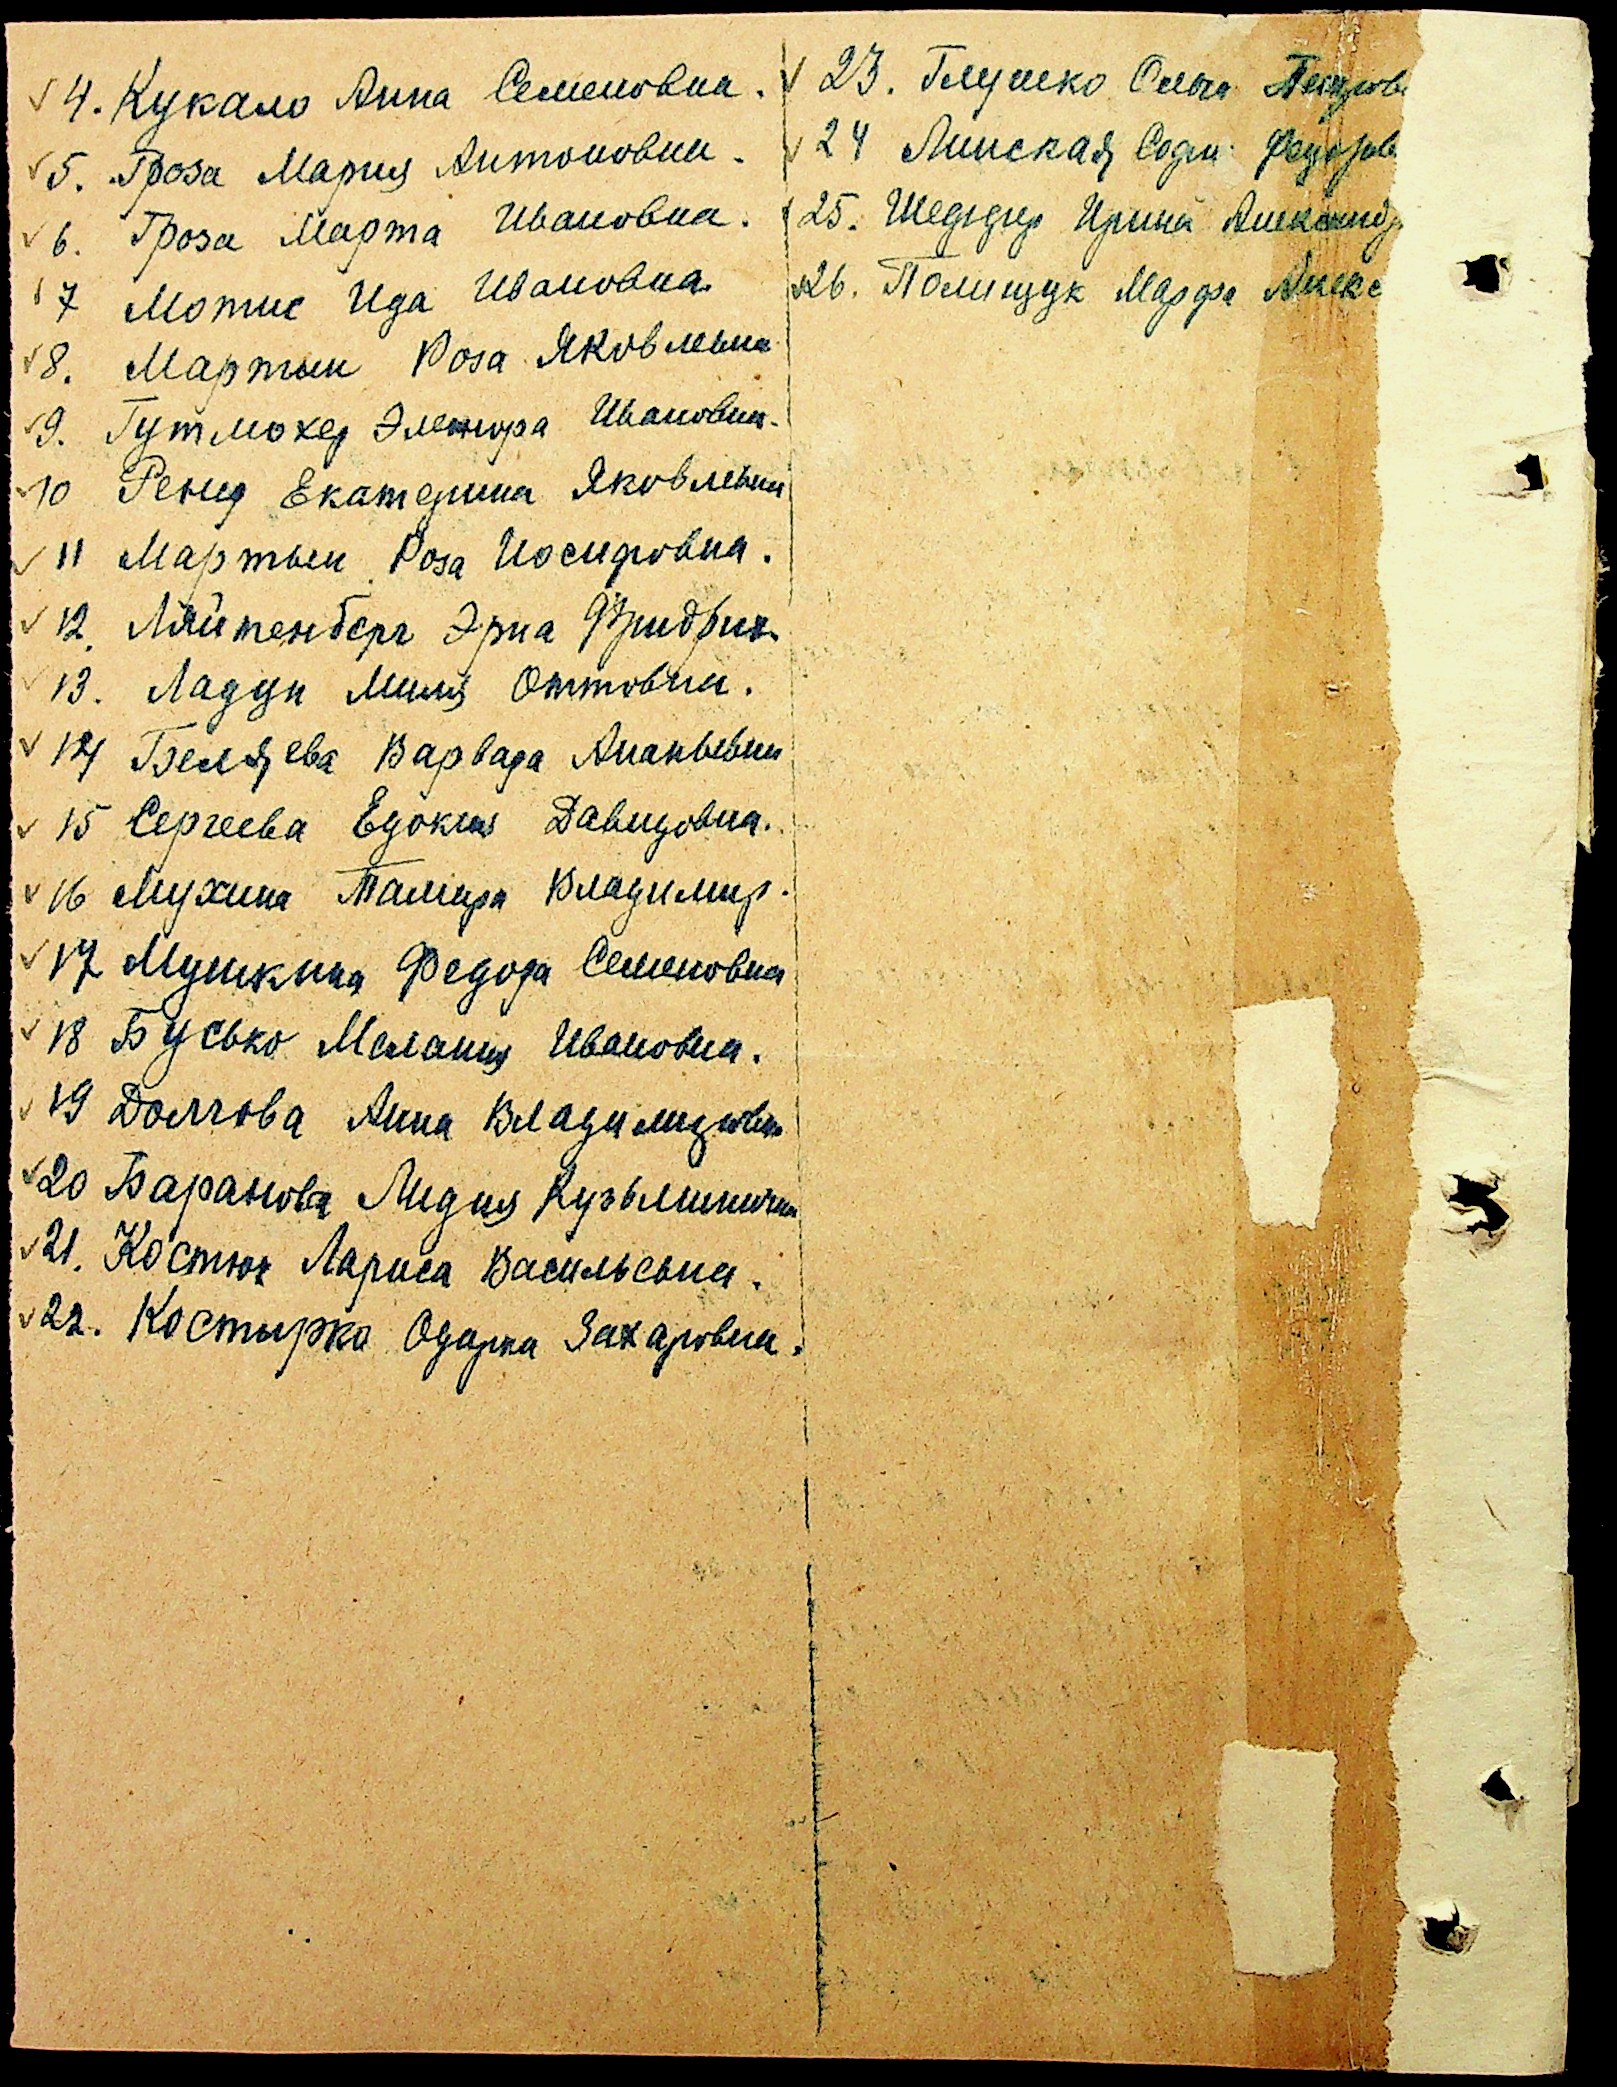 ✓ 4. Кукало Анна Семеновна.
✓ 5. Гроза Мария Антоновна.
✓ 6. Гроза Марта Ивановна.
✓ 7 Мотис Ида Ивановна
✓ 8. Мартын Роза Яковлевна
✓ 9. Гутмохер Эленора Ивановна.
✓ 10 Рениг Екатерина Яковлевна
✓ 11 Мартын Роза Иосифовна.
✓ 12. Ляйтенберг Эрна Фридрих.
✓ 13. Ладун Миля Оттовна.
✓ 14 Беляева Варвара Ананьевна
✓ 15 Сергеева Едокия Давидовна.
✓ 16 Мухина Тамара Владимир.
✓ 17 Мушкина Федора Семеновна
✓ 18 Бусько Мелания Ивановна.
✓ 19 Долгова Анна Владимировн
✓ 20 Баранова Лидия Кузьминична
✓ 21. Костюк Лариса Васильевна.
✓ 22. Костырко Одарка Захаровна.
✓ 23. Глушко Ольга Петров
✓ 24 Линская Софи Федоров
25. Шедудер Ирина Александр
26. Полищук Марфа Алекс